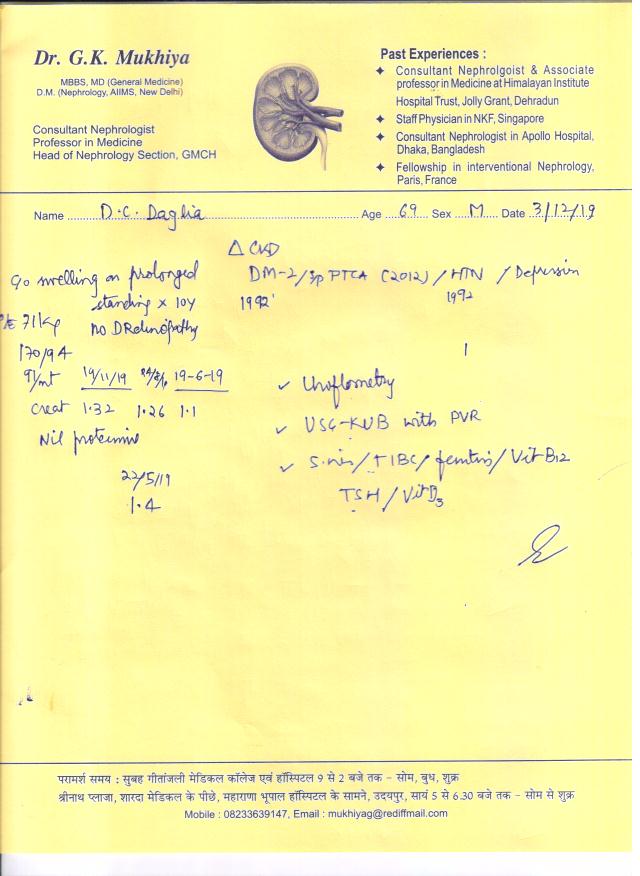 Dr. G.K. Mukhiya
MBBS, MD (General Medicine)
D.M. (Nephrology, AIIMS, New Delhi)
Consultant Nephrologist
Professor in Medicine
Head of Nephrology Section, GMCH
Past Experiences :
Consultant Nephrolgoist & Associate
professor in Medicine at Himalayan Institute
Hospital Trust, Jolly Grant, Dehradun
Staff Physician in NKF, Singapore
Consultant Nephrologist in Apollo Hospital,
Dhaka, Bangladesh
Fellowship in interventional Nephrology,
Paris, France
Name D.C. Daglia Age 69 Sex M Date 3/12/19
Δ CKD
DM-2/ PTCA (2012) / HTN / Depression
1992 1992
swelling on prolonged
standing x 10y
71kg no DRetinopathy
170/94
19/11/19 19-6-19
Creat 1.32 1.26 1.1
Nil proteinuria
22/5/19
1.4
✓ Uroflometry
✓ USG-KUB with PVR
✓ S. / TIBC / / Vit B12
TSH / Vit D3
परामर्श समय : सुबह गीतांजली मेडिकल कॉलेज एवं हॉस्पिटल 9 से 2 बजे तक - सोम, बुध, शुक्र
श्रीनाथ प्लाजा, शारदा मेडिकल के पीछे, महाराणा भूपाल हॉस्पिटल के सामने, उदयपुर, सायं 5 से 6.30 बजे तक - सोम से शुक्र
Mobile : 08233639147, Email : mukhiyag@rediffmail.com